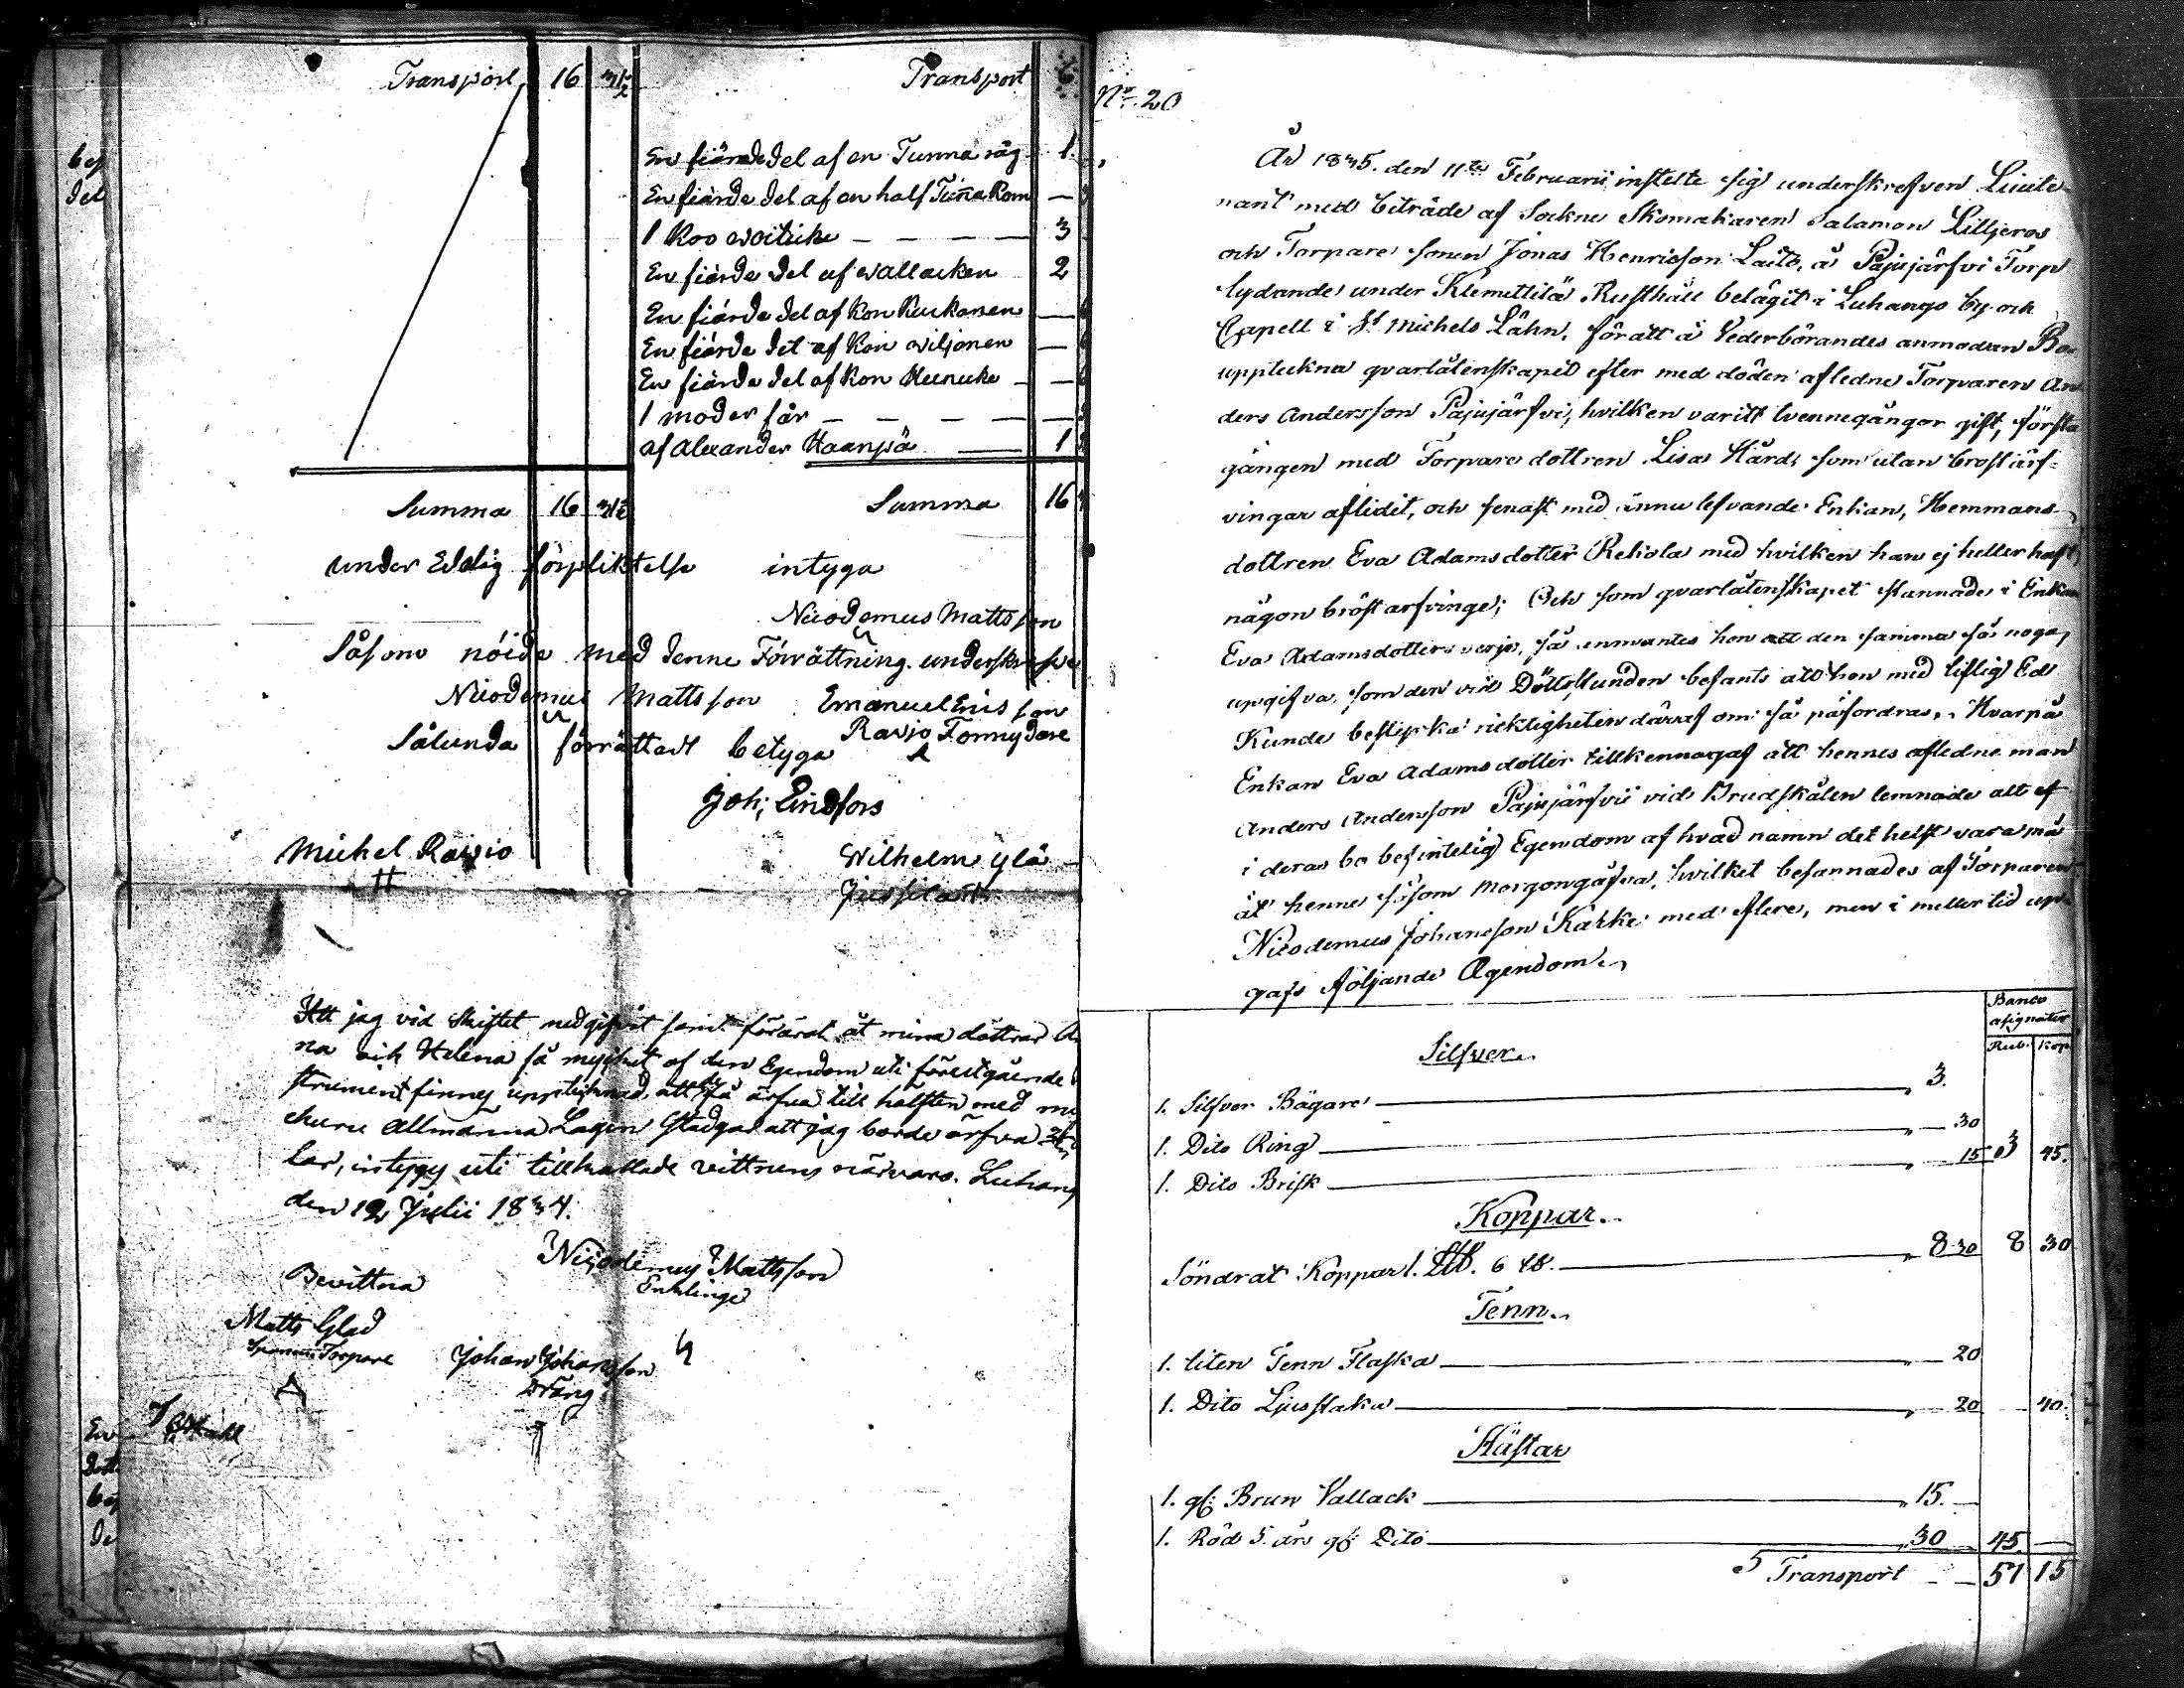 Transport 16 Transport 6
En fiärdedel af en Tunna råg 1
En fiärde del af en half Tuña Korn —
1 Koo woitiche — — — — 3
En fiärde del af wallacken 2
En fiärde del af Kon Kuckonen —
En fiärde del af Kon wiljonen —
En fiärde del af Kon —
1 moder får — — — — —
af Alexander Haanpä — 1
Summa 16 Summa 16
under Edelig förpliktelse intyga
Nicodemus Mattsson
Såsom nöida med denne Förrättning underskrifve
Nicodemus Mattsson Emanuel Enisson
Rawjo Förmydare
Sålunda förrättadt betyga
Joh; Lindfors
Michel Rawio
Wilhelm ylä
Jussila
Att jag vid skiftet medgifvit samt förärat åt mina döttrar A
na och Helena så mycket af den Egendom uti förestgående
strument finnes upptecknad, att de få ärfva till hälften med mi
churu Allmänna Lagen stadgar att jag borde ärfva
lar, intygy uti tillkallade vittnens närvaro. Luhang
den 12 Julii 1834.
Nicodemus Mattsson
Enklinge
Bevittna
Matts Glad
Torpare
Johan Johansson
Dräng
bef
del
En
bef
de
No. 20
År 1835. den 11te Februarii instelte sig underskrefven Lieute
nant med biträde af Sockne Skomakaren Salamon Lilljeros
och Torpare sonen Jonas Henricsson Laito, å Pajujärfvi Torp
lydande under Klemettilä Rusthåll belägit i Luhango by och
Capell i St Michels Lähn, för att å Vederbörandes anmodan Bo
uppteckna qvarlåtenskapet efter med döden aflednе Torparen An
ders Andersson Pajujärfvi, hvilken varitt tvennegångor gift, första
gången med Torpare dottren Lisa Hård, som utan bröst ärf-
vingar aflidit, och senast med ännu lefvande Enkan, Hemmans
dottren Eva Adamsdotter Rekola med hvilken han ej heller haft
någon bröst arfvinge; Och som qvarlåtenskapet stannade i Enkan
Eva Adamsdotters verjo, så anmantes hon att den samma så noga
upgifva, som den vid Dödsstunden befants att hon med liflig Ed
Kunde bestyrka ricktigheten däraf om så påfordras, Hvarpå
Enkan Eva Adamsdotter tillkennagaf att hennes afledne man
Anders Andersson Pajujärfvi vid Brudskålen lemnade alt ef
i deras bo befintelig Egendom af hvad namn det helst vara må
åt henne såsom Morgongåfva, hvilket besannades af Torparen
Nicodemus Johansson Karke med flere, men i mellertid up-
gafs följande Ägendom.
Banco
asignater
Rub. Kop
Silfver.
1. Silfver Bägare — 3.
1. Dito Ring — 30
1. Dito Brisk — 15 3 45.
Koppar.
Söndrat Koppar 1. 6 — 8 30 8 30
Tenn.
1. liten Tenn Flaska — 20
1. Dito Ljusstaka — 20 — 40.
Hästar
1. gl: Brun Vallack — 15. —
1. Röd 5. års gl: Dito — 30 45. —
Transport — 57 15